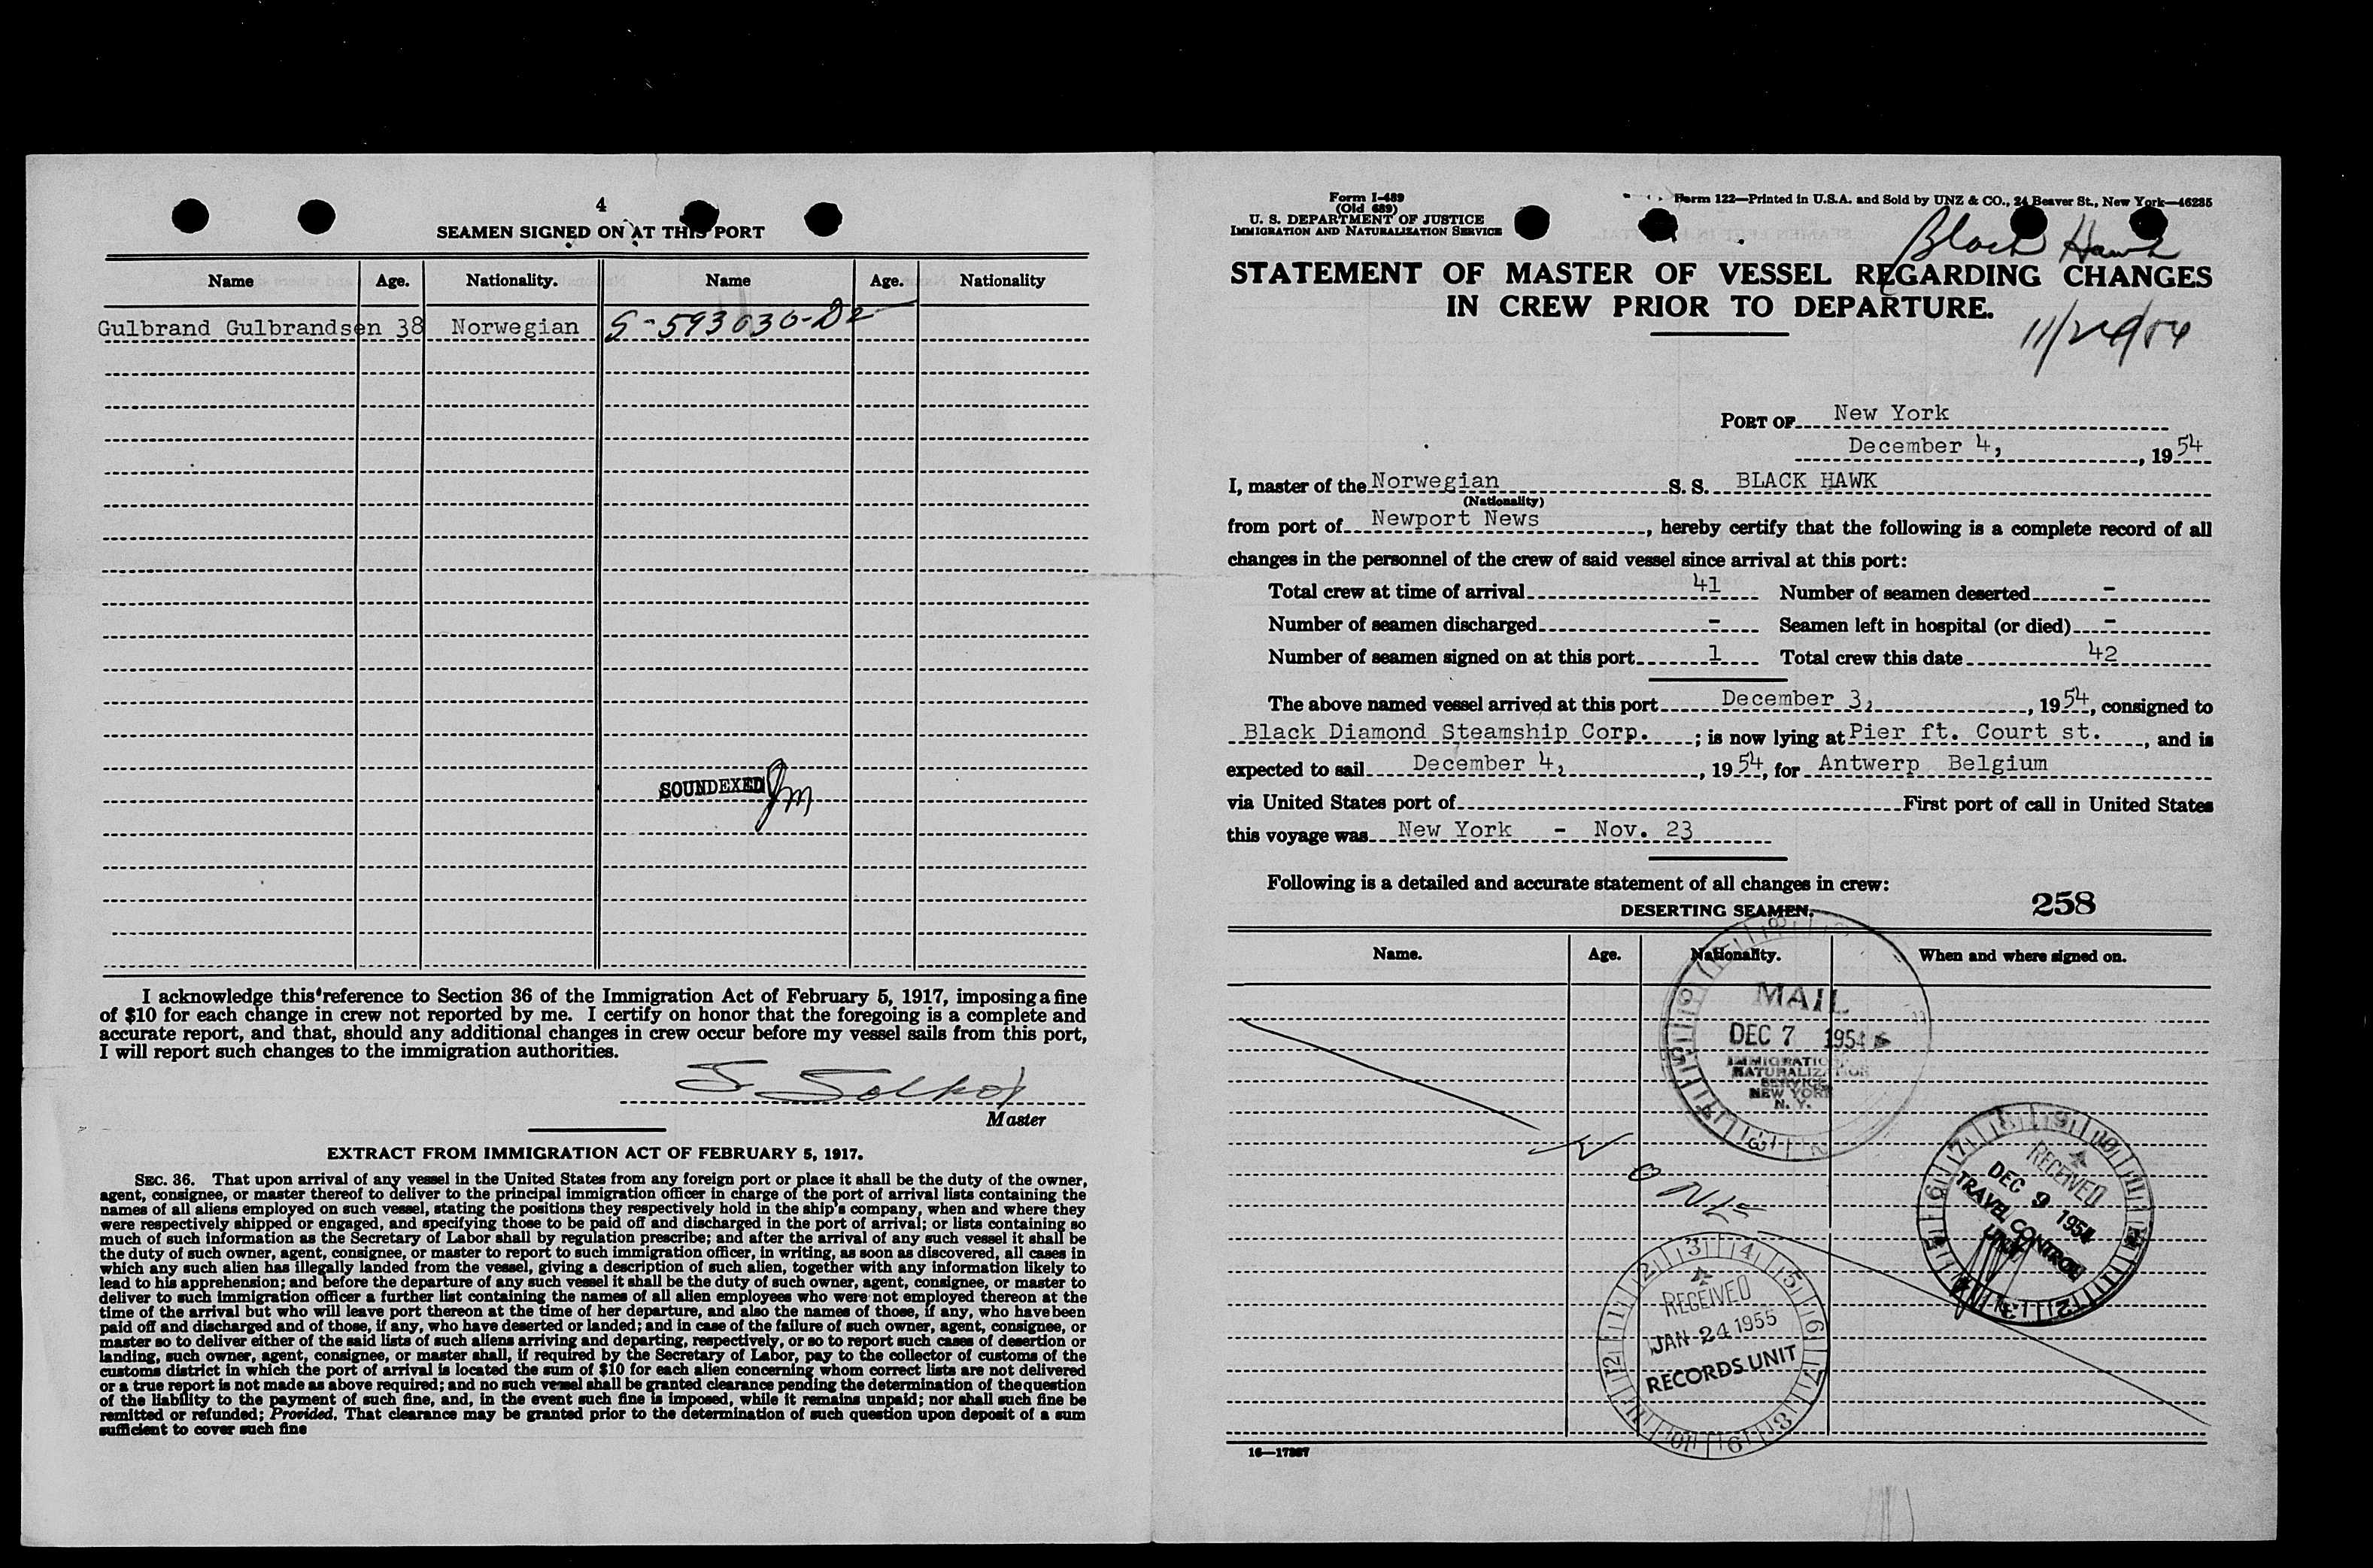 4
SEAMEN SIGNED ON AT THIS PORT
Name Age. Nationality. Name Age. Nationality
Gulbrand Gulbrandsen 38 Norwegian
SOUNDEXED
I acknowledge this reference to Section 36 of the Immigration Act of February 5, 1917, imposing a fine
of $10 for each change in crew not reported by me. I certify on honor that the foregoing is a complete and
accurate report, and that, should any additional changes in crew occur before my vessel sails from this port,
I will report such changes to the immigration authorities.
Master
EXTRACT FROM IMMIGRATION ACT OF FEBRUARY 5, 1917.
SEC. 36. That upon arrival of any vessel in the United States from any foreign port or place it shall be the duty of the owner,
agent, consignee, or master thereof to deliver to the principal immigration officer in charge of the port of arrival lists containing the
names of all aliens employed on such vessel, stating the positions they respectively hold in the ship's company, when and where they
were respectively shipped or engaged, and specifying those to be paid off and discharged in the port of arrival; or lists containing so
much of such information as the Secretary of Labor shall by regulation prescribe; and after the arrival of any such vessel it shall be
the duty of such owner, agent, consignee, or master to report to such immigration officer, in writing, as soon as discovered, all cases in
which any such alien has illegally landed from the vessel, giving a description of such alien, together with any information likely to
lead to his apprehension; and before the departure of any such vessel it shall be the duty of such owner, agent, consignee, or master to
deliver to such immigration officer a further list containing the names of all alien employees who were not employed thereon at the
time of the arrival but who will leave port thereon at the time of her departure, and also the names of those, if any, who have been
paid off and discharged and of those, if any, who have deserted or landed; and in case of the failure of such owner, agent, consignee, or
master so to deliver either of the said lists of such aliens arriving and departing, respectively, or so to report such cases of desertion or
landing, such owner, agent, consignee, or master shall, if required by the Secretary of Labor, pay to the collector of customs of the
customs district in which the port of arrival is located the sum of $10 for each alien concerning whom correct lists are not delivered
or a true report is not made as above required; and no such vessel shall be granted clearance pending the determination of the question
of the liability to the payment of such fine, and, in the event such fine is imposed, while it remains unpaid; nor shall such fine be
remitted or refunded; Provided, That clearance may be granted prior to the determination of such question upon deposit of a sum
sufficient to cover such fine
Form I-489
(Old 689)
U. S. DEPARTMENT OF JUSTICE
IMMIGRATION AND NATURALIZATION SERVICE
Form 122—Printed in U.S.A. and Sold by UNZ & CO., 24 Beaver St., New York—46235
Black Hawk
STATEMENT OF MASTER OF VESSEL REGARDING CHANGES
IN CREW PRIOR TO DEPARTURE.
PORT OF New York
December 4, , 1954
I, master of the Norwegian S. S. BLACK HAWK
(Nationality)
from port of Newport News , hereby certify that the following is a complete record of all
changes in the personnel of the crew of said vessel since arrival at this port:
Total crew at time of arrival 41 Number of seamen deserted -
Number of seamen discharged - Seamen left in hospital (or died) -
Number of seamen signed on at this port 1 Total crew this date 42
The above named vessel arrived at this port December 3, , 1954, consigned to
Black Diamond Steamship Corp. ; is now lying at Pier ft. Court st. , and is
expected to sail December 4, , 1954, for Antwerp Belgium
via United States port of First port of call in United States
this voyage was New York - Nov. 23
Following is a detailed and accurate statement of all changes in crew:
258
DESERTING SEAMEN.
Name. Age. Nationality. When and where signed on.
MAIL
DEC 7 1954
IMMIGRATION
NATURALIZATION
SERVICE
NEW YORK
N. Y.
NONE
RECEIVED
DEC 9 1954
TRAVEL CONTROL
UNIT
RECEIVED
JAN 24 1955
RECORDS UNIT